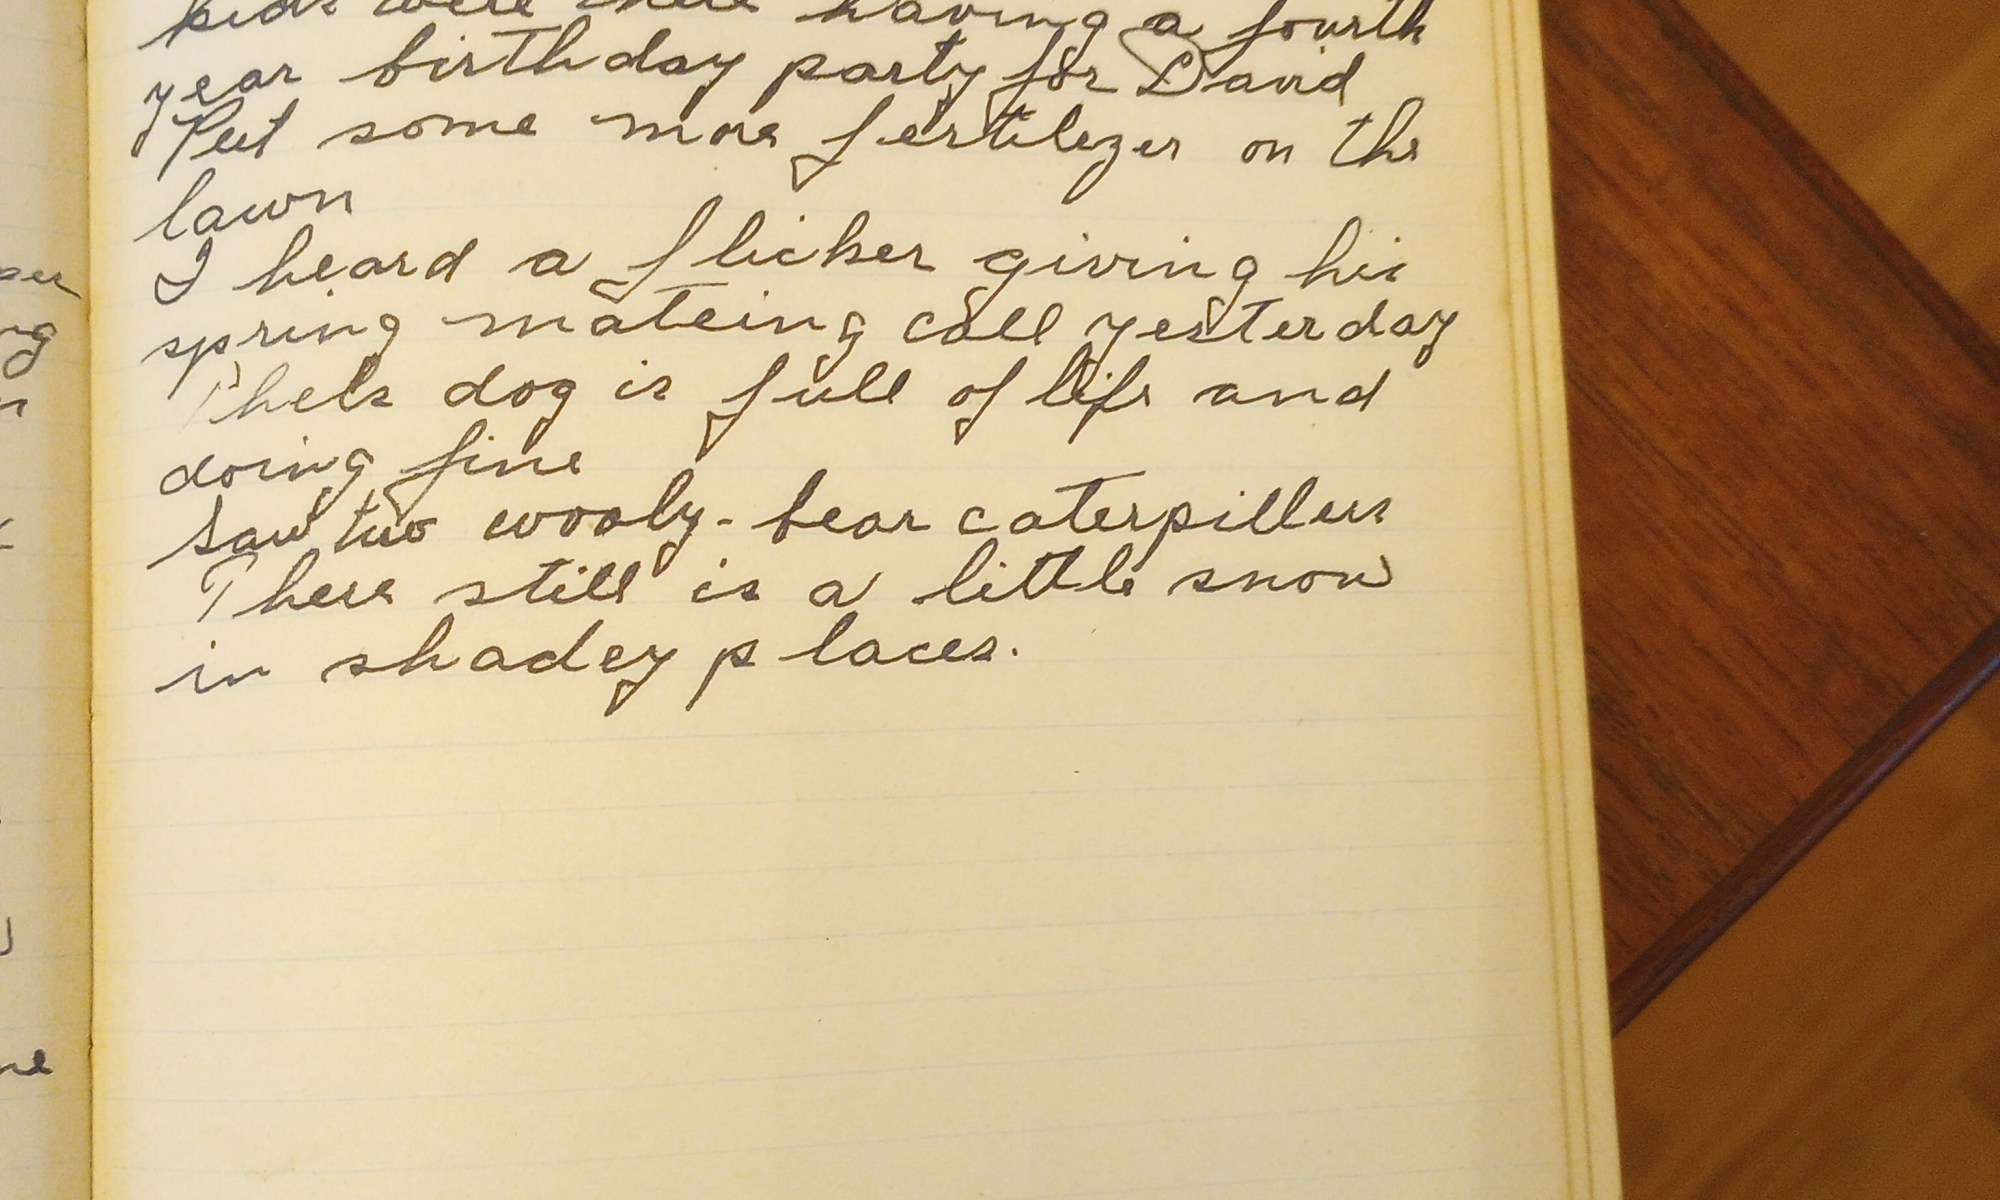 kids were there having a fourth
year birthday party for David
Put some more fertilezer on the
lawn
I heard a flicker giving his
spring mateing call yesterday
Phels dog is full of life and
doing fine
Saw two wooly-bear caterpillers
There still is a little snow
in shadey places.